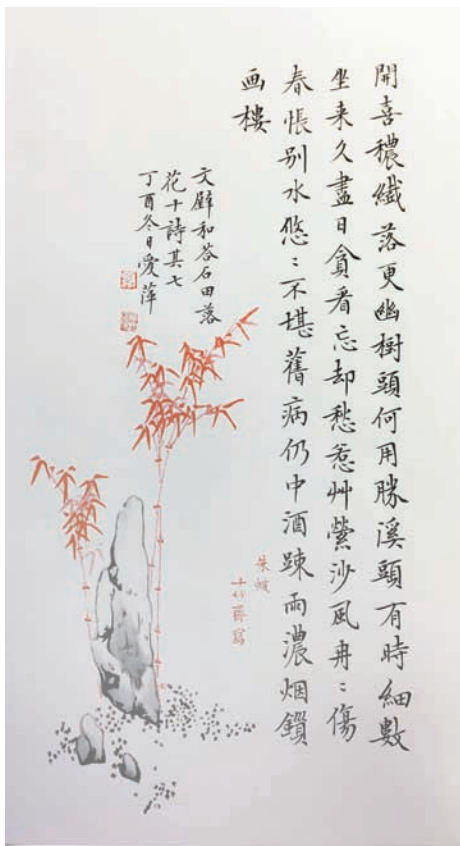 開喜穠纖落更幽樹頭何用勝溪頭有時細數
坐来久盡日貪看忘却愁惹艸縈沙風冉〻傷
春悵别水悠〻不堪舊病仍中酒踈雨濃烟鎖
画樓
文壁和答石田落
花十詩其七
丁酉冬日愛萍
十竹齋寫